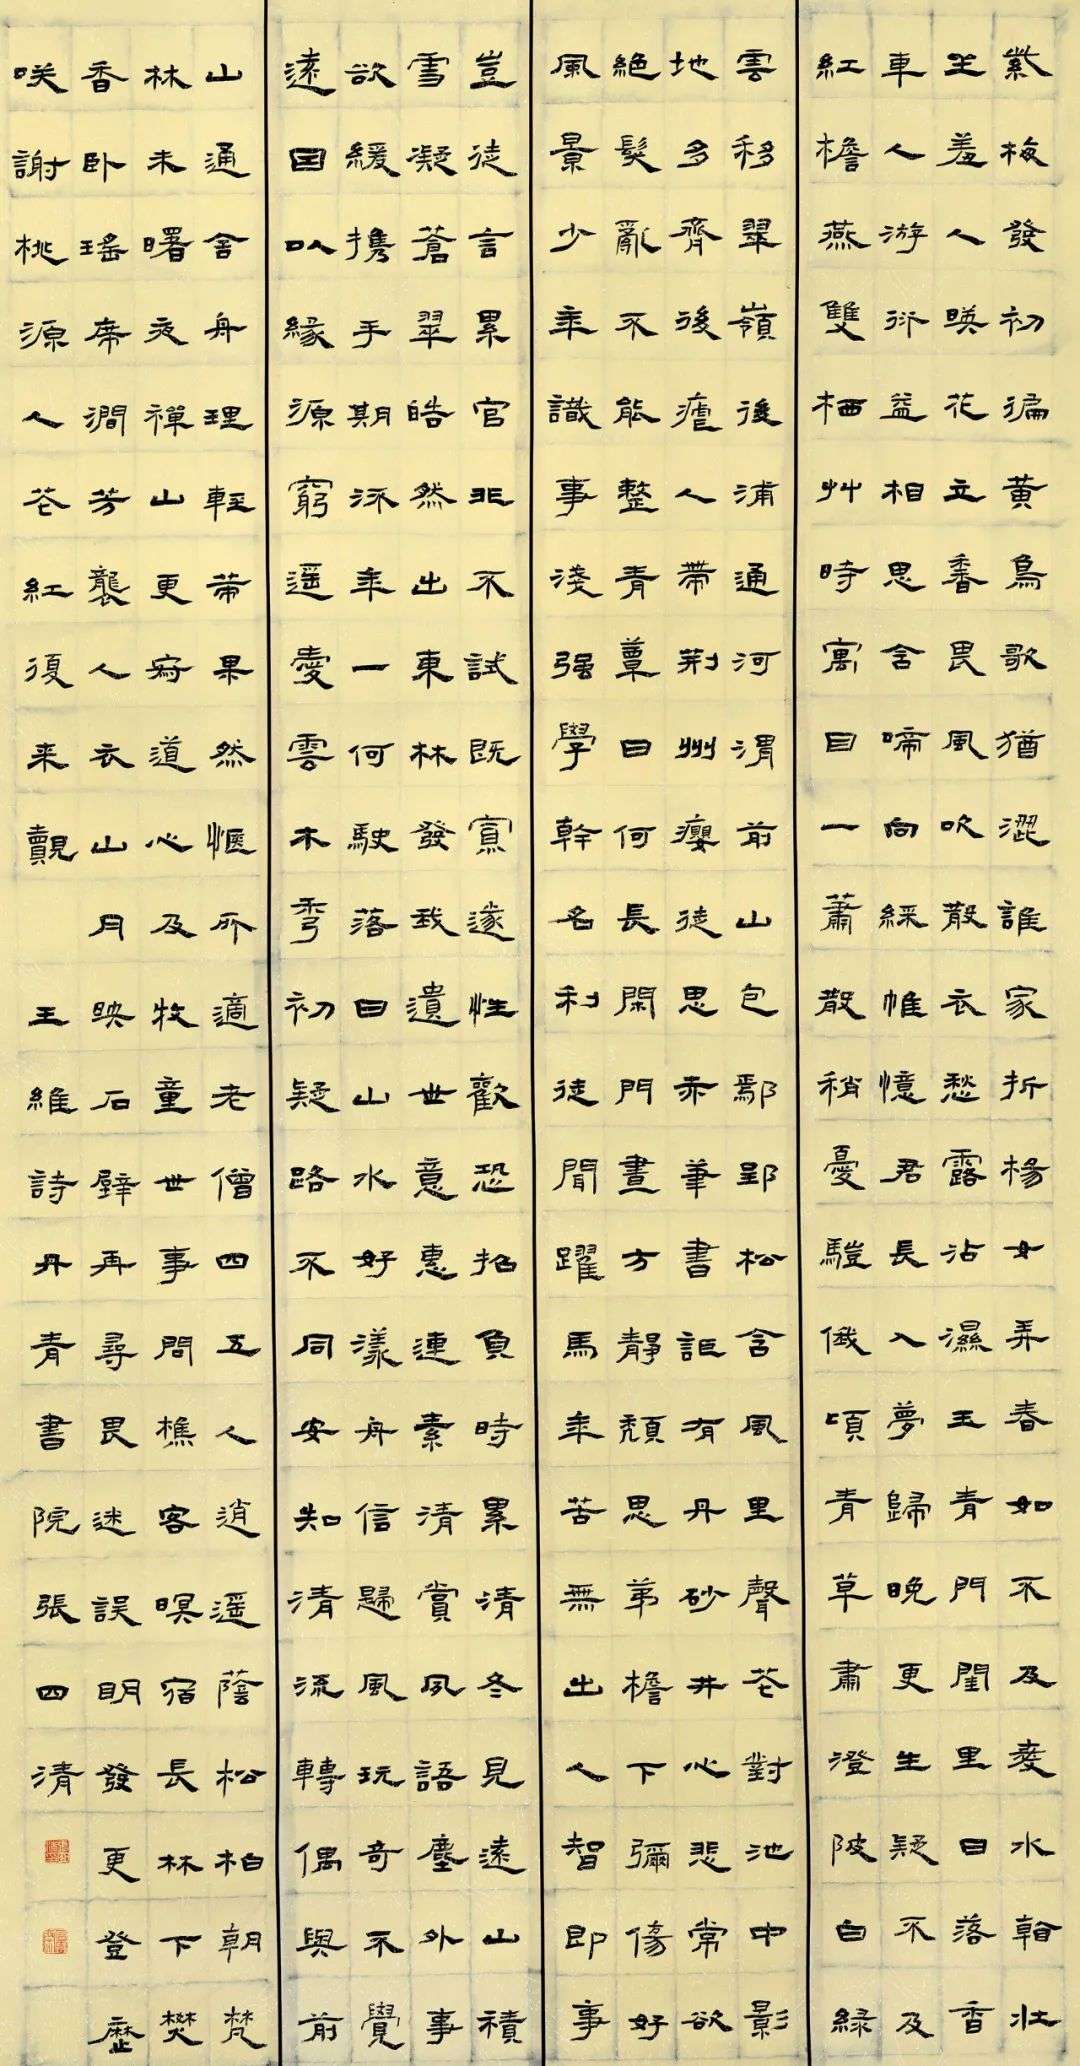 紫梅發初徧黄鳥歌猶澀誰家折楊女弄春如不及愛水看妝
坐羞人暎花立香畏風吹散衣愁露沾濕玉青門閨里日落香
車人游衍益相思含啼向綵帷憶君長入夢歸晚更生疑不及
紅檐燕雙栖艸時寓目一蕭散稍憂俄頃青草肅澄陂白緑
雲移翠嶺後浦通河渭前山包鄢郢松含風里聲花對池中影
地多齊後瘧人帶荆州癭徒思赤筆書詎有丹砂井心悲常欲
絕髮亂不能整青簟日何長閑門晝方靜頹思茅檐下彌傷好
風景少年識事淺强學幹名利徒聞躍馬年苦無出人智即事
豈徒言累官非不試既寡遂性歡恐招負時累清冬見遠山積
雪凝蒼翠皓然出東林發我遺世意惠連素清賞夙語塵外事
欲緩携手期流年一何駛落日山水好漾舟信歸風玩奇不覺
遠因以緣源窮遥愛雲木秀初疑路不同安知清流轉偶與前
山通舍舟理輕策果然愜所適老僧四五人逍遥蔭松柏朝梵
林未曙夜禪山更寂道心及牧童世事問樵客暝宿長林下焚
香卧瑤席澗芳襲人衣山月映石壁再尋畏迷誤明發更登歷
咲謝桃源人花紅復来覿 王維詩丹青書院張四清